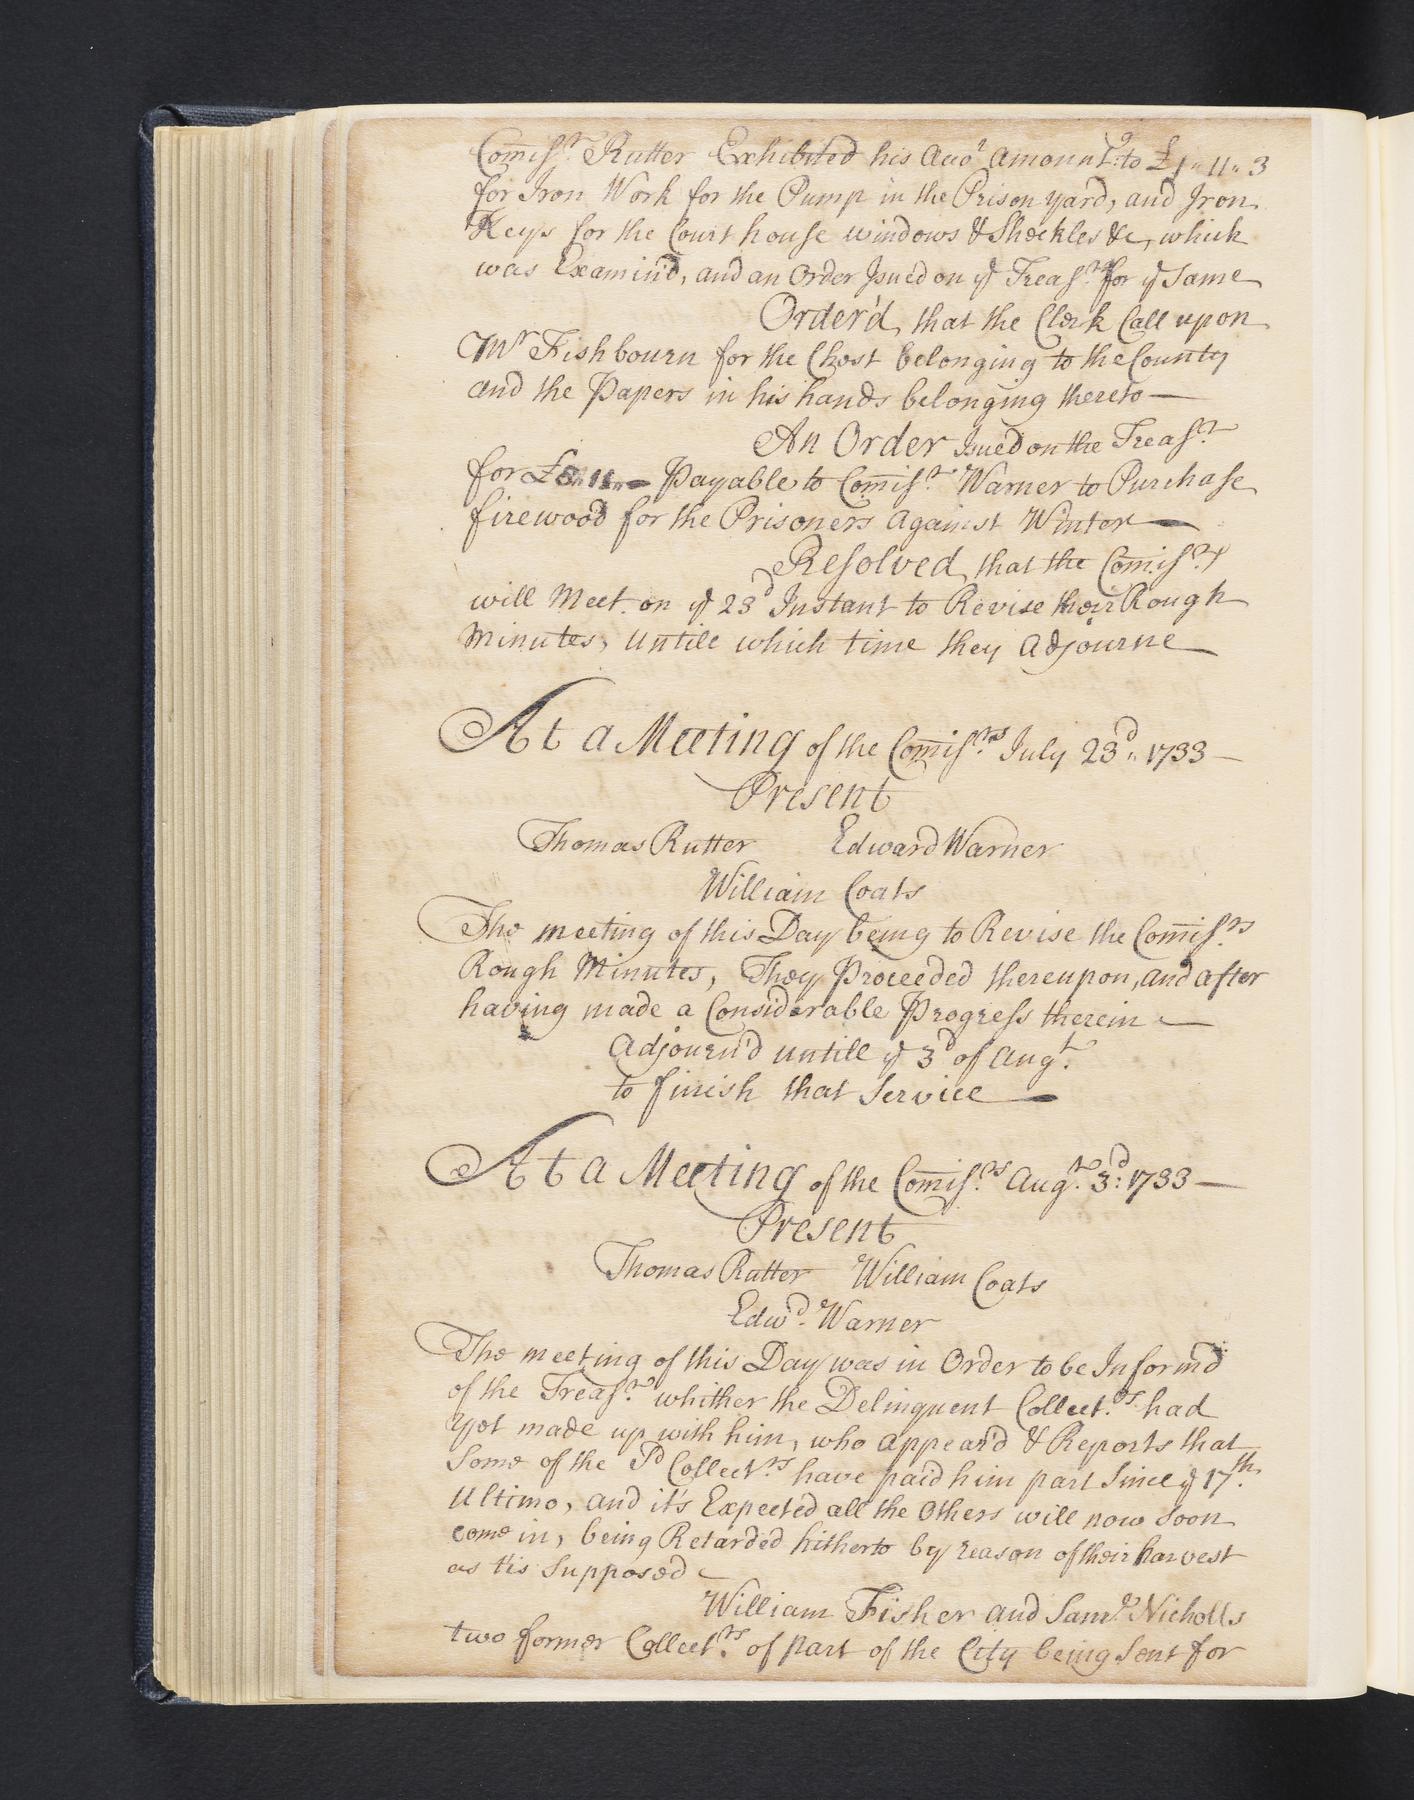 Comiss.r Rutter Exhibited his Acco.t amount.g to £1" 11" 3
for Iron Work for the Pump in the Prison yard, and Iron
Keys for the Court house windows & Shockles &c, which
was Examin'd, and an Order Issued on ye Treas.r for ye Same
Order'd, that the Clerk Call upon
Mr Fishbourn for the Chest belonging to the County
and the Papers in his hands belonging thereto —
An Order Issued on the Treas.r
for Payable to Comiss.r Warner to Purchase
firewood for the Prisoners against Winter —
Resolved, that the Comiss.rs
will Meet on ye 23d Instant to Revise their Rough
Minutes, Untill which time they Adjourne
At a Meeting of the Comiss.rs July 23d" 1733 —
Present
Thomas Rutter Edward Warner
William Coats
The meeting of this Day being to Revise the Comiss.rs
Rough Minutes, They Proceeded thereupon, and after
having made a Considerable Progress therein —
Adjourn'd untill ye 3d of Aug.t
to finish that Service —
At a Meeting of the Comiss.rs Aug.t 3d: 1733 —
Present
Thomas Rutter William Coats
Edw.d Warner
The meeting of this Day was in Order to be Inform'd
of the Treas.r whither the Delinquent Collect.rs had
yet made up with him, who appear'd & Reports that
Some of the Sd Collect.rs have paid him part Since ye 17th.
Ultimo, and it's Expected all the Others will now Soon
come in, being Retarded hitherto by reason of their harvest
as tis Supposed —
William Fisher and Sam.l Nicholls
two former Collect.rs of part of the City being Sent for